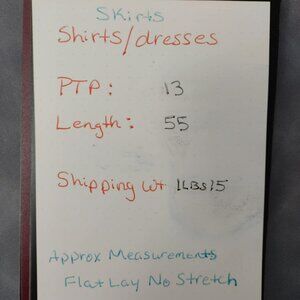 Skirts
Shirts/dresses
PTP: 13
Length: 55
Shipping wt 1LBS15
Approx Measurements
Flat Lay No Stretch